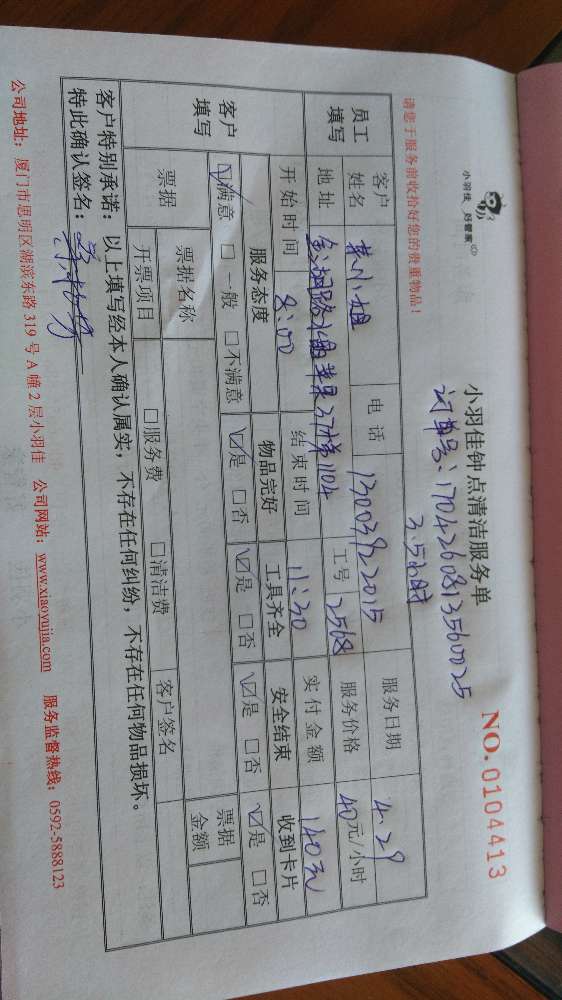 小羽佳 好管家
小羽佳钟点清洁服务单
NO.0104413
订单号:1704260813560025
3.5小时
请您于服务前收拾好您的贵重物品!
员工填写
客户姓名 小姐 电话 13003922015 服务日期 4.29
地址 27栋1104 工号 2568 服务价格 40元/小时
开始时间 8:00 结束时间 11:30 实付金额 140元
客户填写
服务态度 物品完好 工具齐全 安全结束 收到卡片
☑满意 □一般 □不满意 ☑是 □否 ☑是 □否 ☑是 □否 ☑是 □否
票据 票据名称 票据金额
开票项目 □服务费 □清洁费 客户签名
客户特别承诺:以上填写经本人确认属实,不存在任何纠纷,不存在任何物品损坏。
特此确认签名:
公司地址:厦门市思明区湖滨东路319号A幢2层小羽佳 公司网站:www.xiaoyujia.com 服务监督热线:0592-5888123